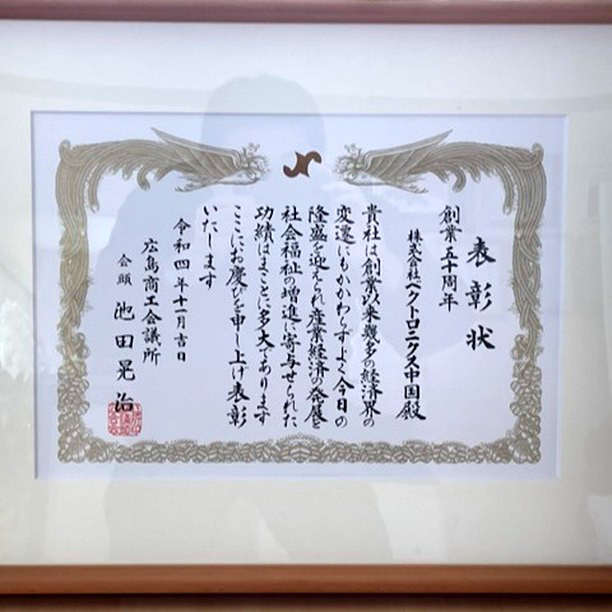 表彰状
創業五十周年
株式会社ベクトロニクス中国殿
貴社は創業以来幾多の経済界の
変遷にもかかわらずよく今日の
隆盛を迎えられ産業経済の発展と
社会福祉の増進に寄与せられた
功績はまことに多大であります
ここにお慶びを申し上げ表彰
いたします
令和四年十一月吉日
広島商工会議所
会頭 池田晃治